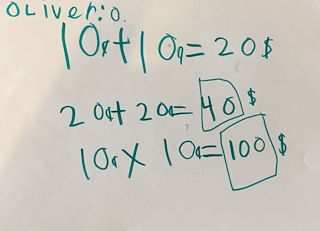 OLiver:o.
10¢+10¢=20$
20¢+20¢=40$
10¢X10¢=100$